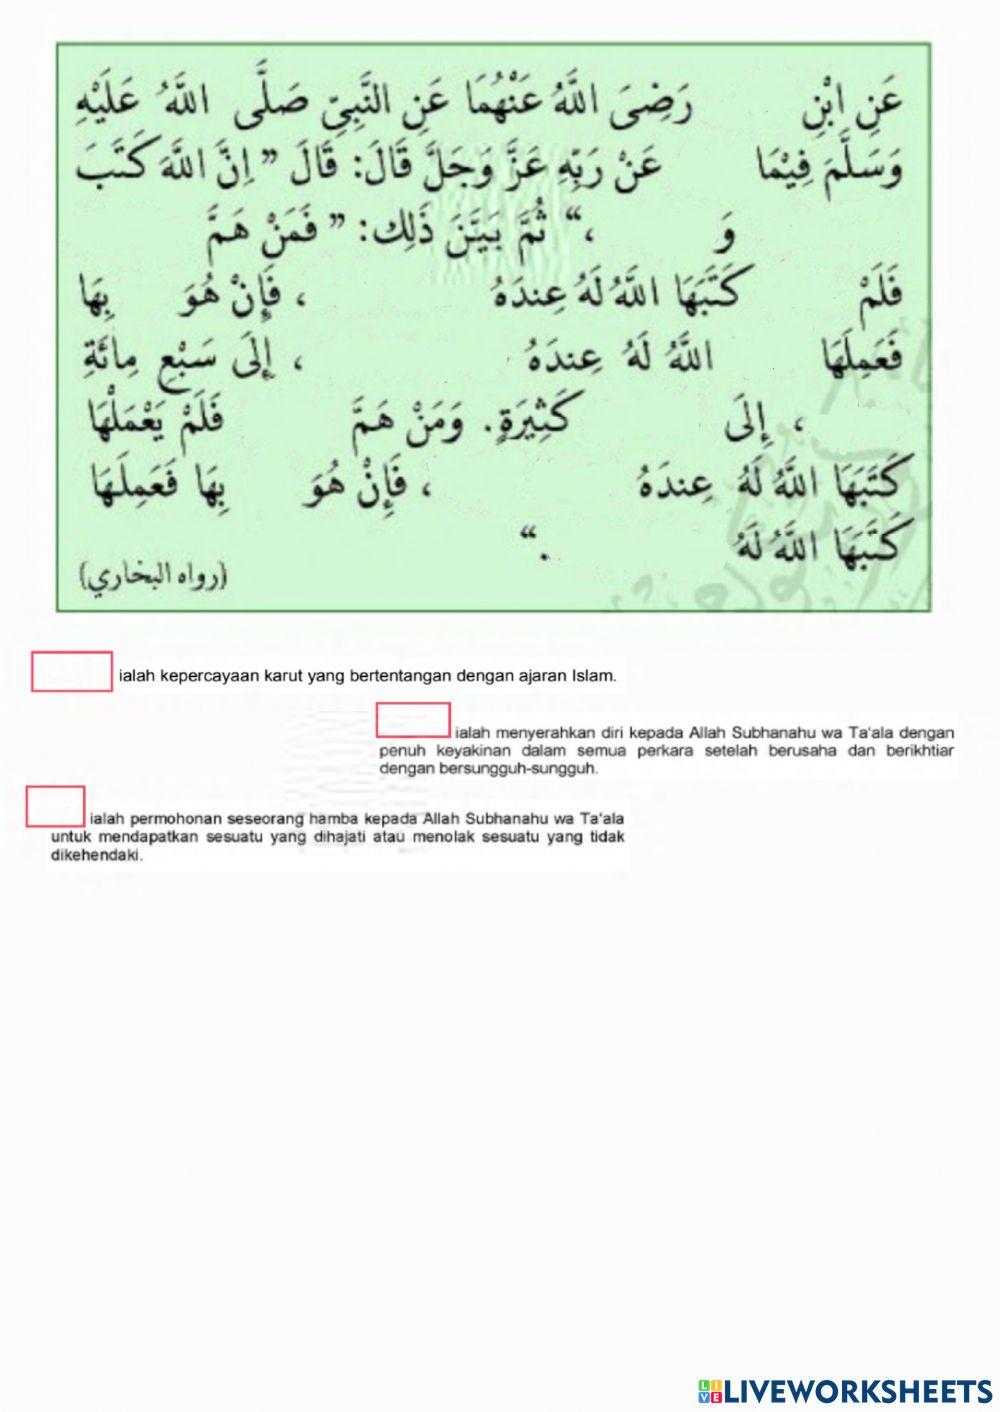 عَنِ ابْنِ رَضِيَ اللَّهُ عَنْهُمَا عَنِ النَّبِيِّ صَلَّى اللَّهُ عَلَيْهِ
وَسَلَّمَ فِيْمَا عَنْ رَبِّهِ عَزَّ وَجَلَّ قَالَ: قَالَ ” اِنَّ اللَّهَ كَتَبَ
وَ ،“ ثُمَّ بَيَّنَ ذَلِك: ” فَمَنْ هَمَّ
فَلَمْ كَتَبَهَا اللَّهُ لَهُ عِندَهُ ، فَإِنْ هُوَ بِهَا
فَعَمِلَهَا اللَّهُ لَهُ عِندَهُ ، إِلَى سَبْعِ مِائَةِ
، إِلَى كَثِيْرَةٍ. وَمَنْ هَمَّ فَلَمْ يَعْمَلْهَا
كَتَبَهَا اللَّهُ لَهُ عِندَهُ ، فَإِنْ هُوَ بِهَا فَعَمِلَهَا
كَتَبَهَا اللَّهُ لَهُ .“
(رواه البخاري)
ialah kepercayaan karut yang bertentangan dengan ajaran Islam.
ialah menyerahkan diri kepada Allah Subhanahu wa Ta'ala dengan
penuh keyakinan dalam semua perkara setelah berusaha dan berikhtiar
dengan bersungguh-sungguh.
ialah permohonan seseorang hamba kepada Allah Subhanahu wa Ta'ala
untuk mendapatkan sesuatu yang dihajati atau menolak sesuatu yang tidak
dikehendaki.
LIVE LIVEWORKSHEETS